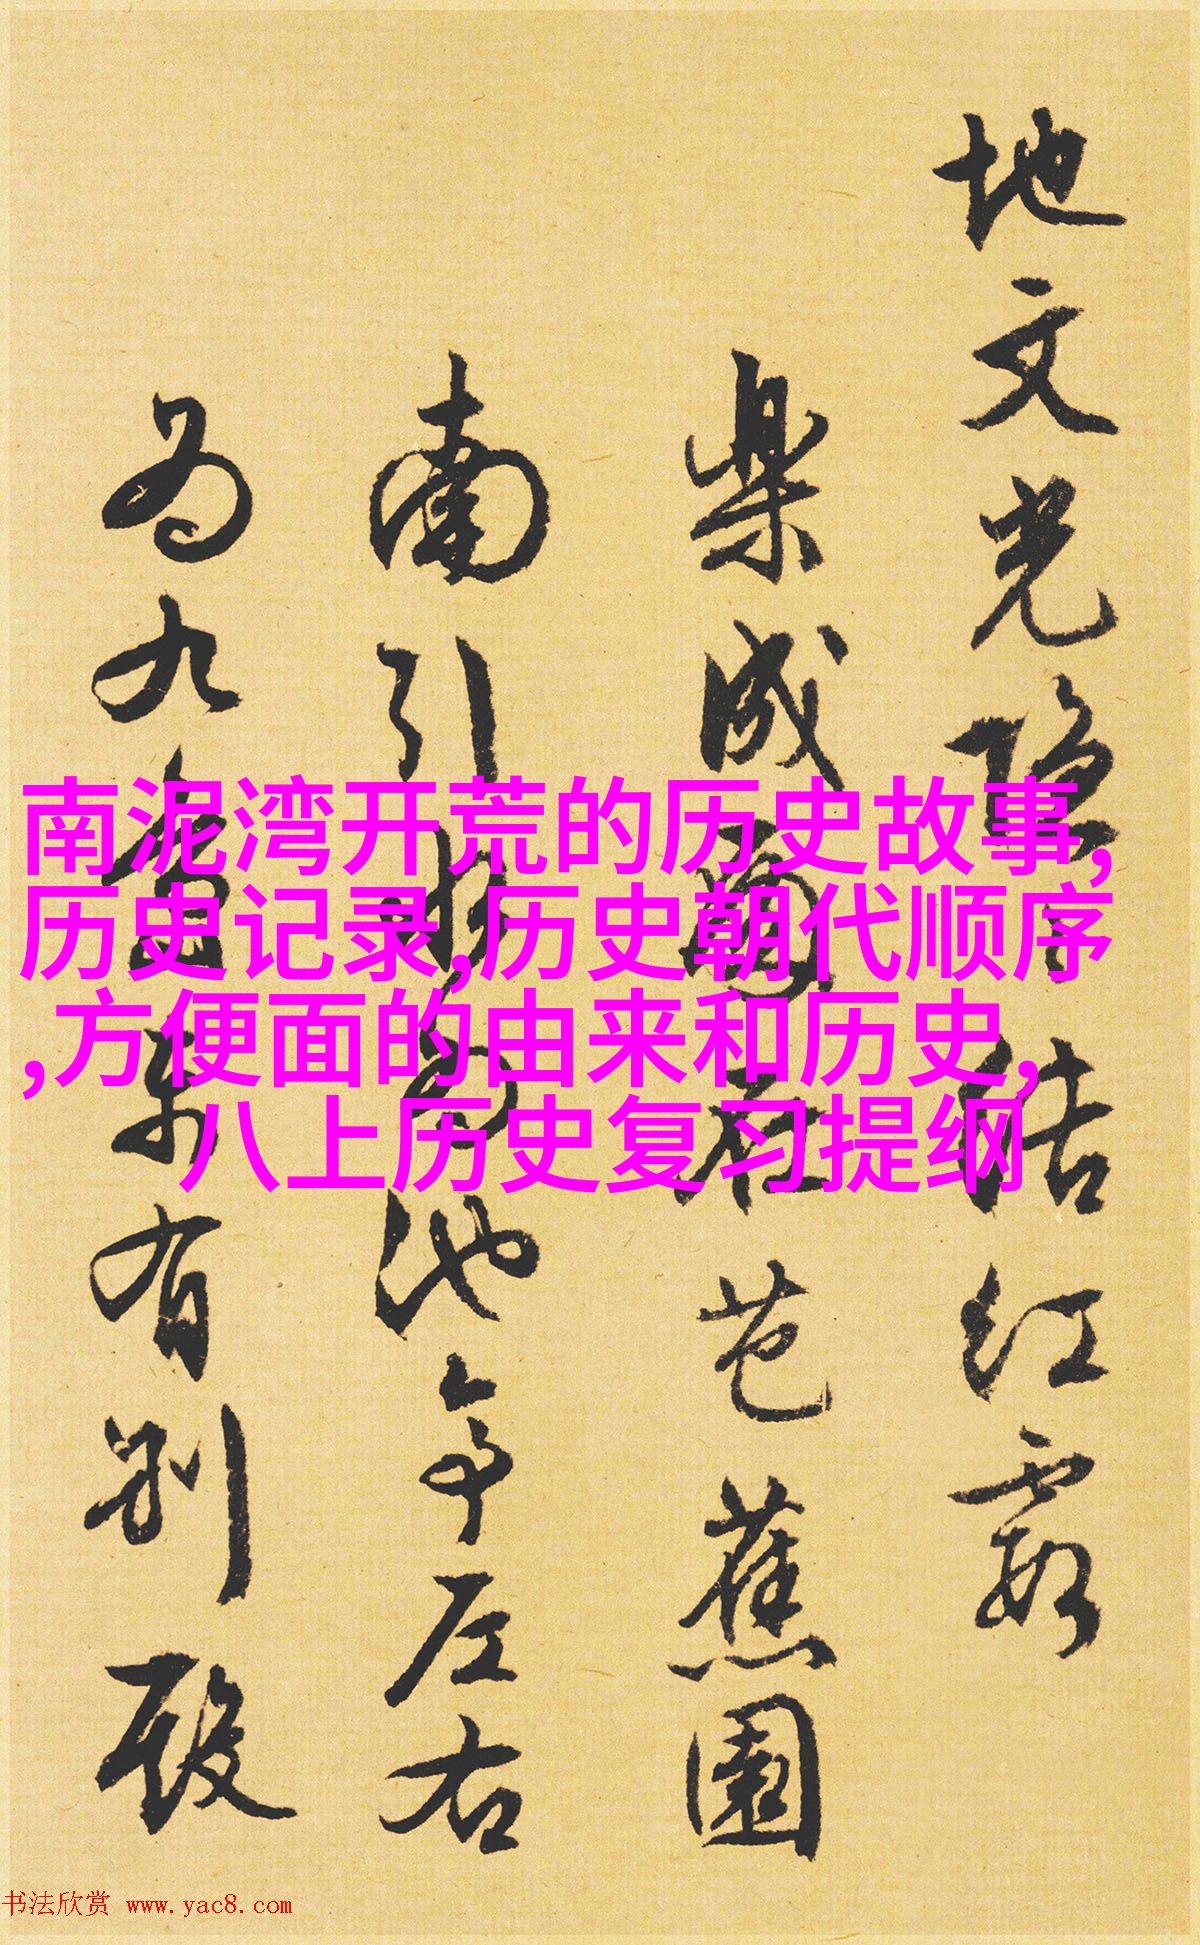 南泥湾开荒的历史故事,
历史记录,历史朝代顺序
,方便面的由来和历史,
八上历史复习提纲
地文光隐结红霞
樂成園在芭蕉園
南引水為池亭左右
為九夏来有别殿
书法欣赏 www.yac8.com